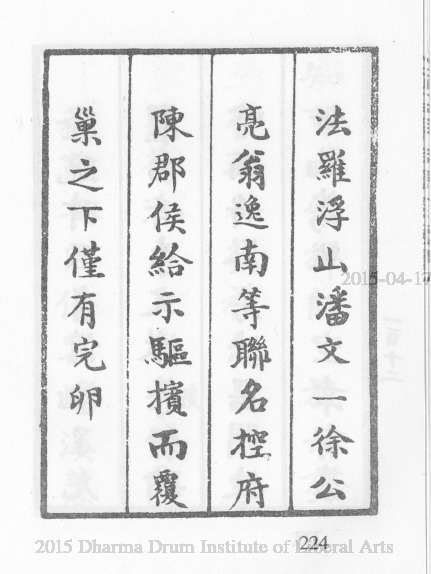 法羅浮山潘文一徐公
亮翁逸南等聯名控府
陳郡侯給示驅擯而覆
巢之下僅有完卵
2015-04-17
224
2015 Dharma Drum Institute of Liberal Arts